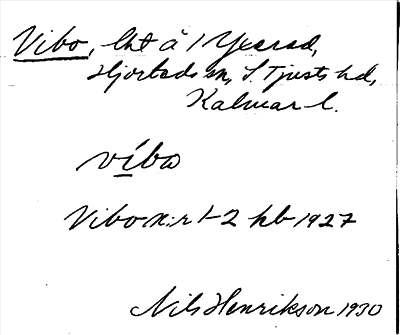 Vibo, lht å 1 Yxered,
Hjorteds sn, S. Tjusts hd,
Kalmar l.
víbo
Vibo n:r 1-2 kb 1927
Nils Henrikson 1930